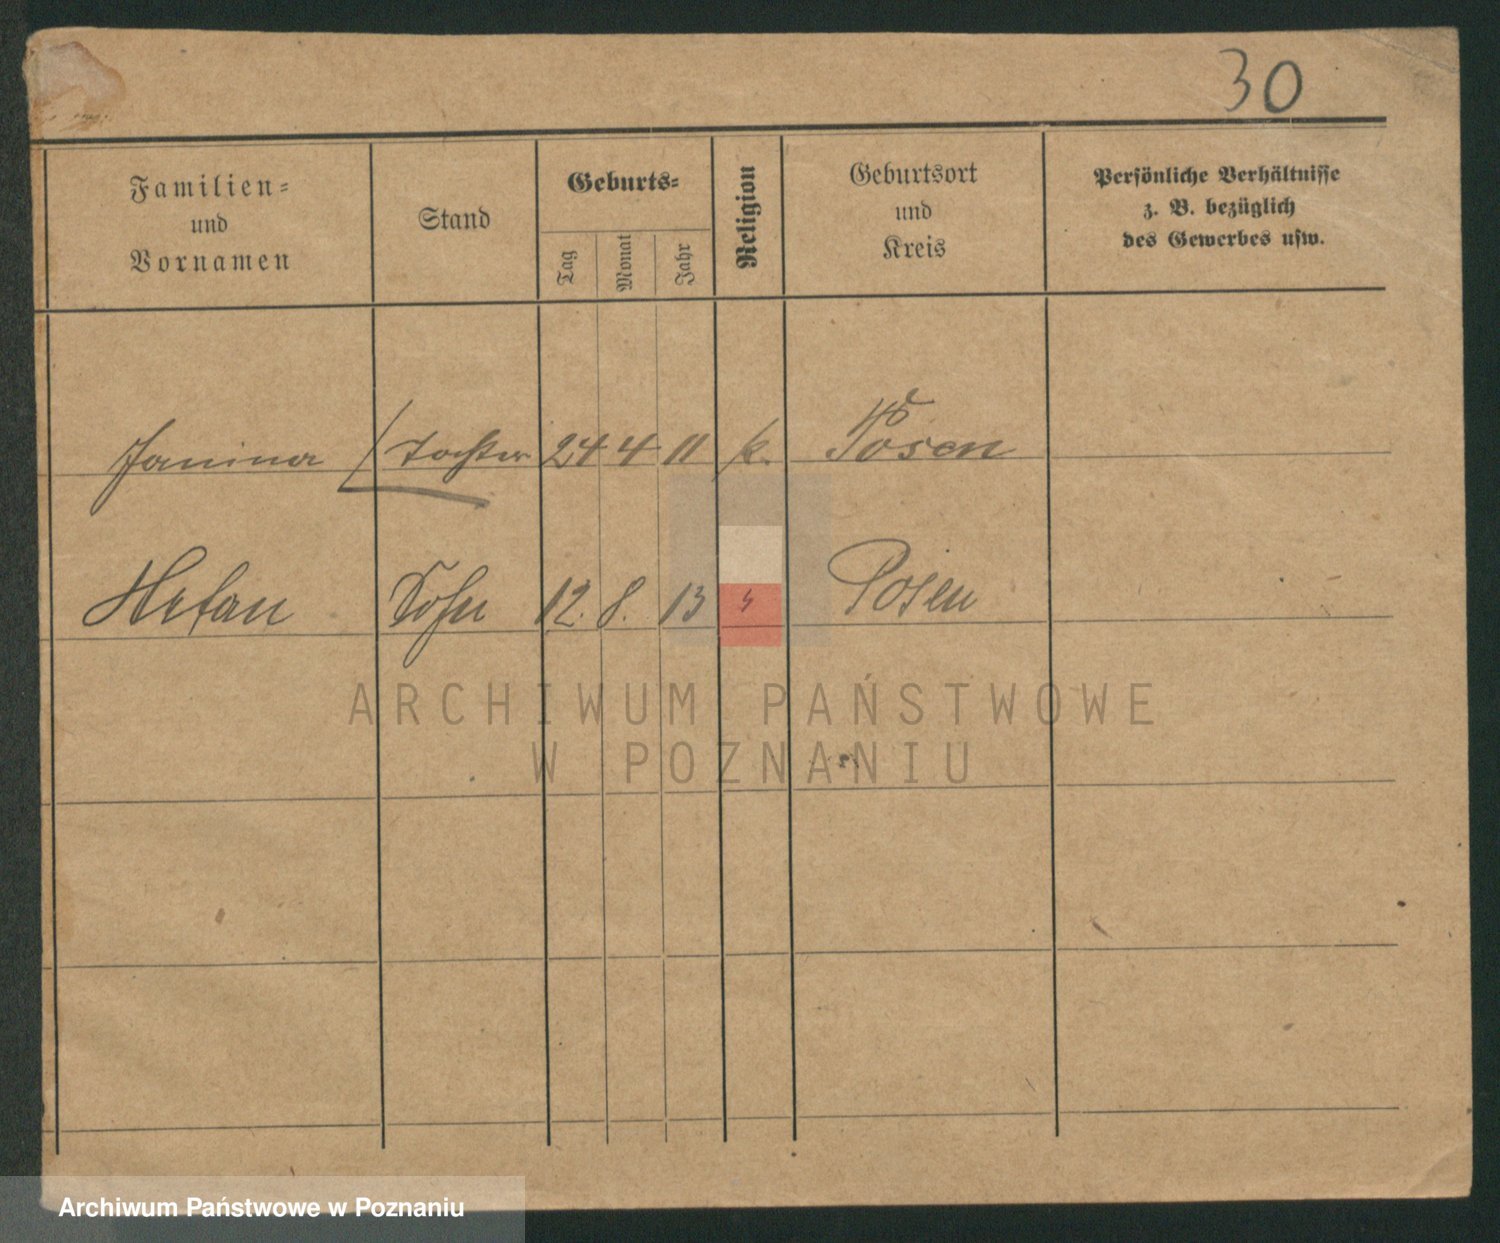 30
Familien-
und
Vornamen
Stand
Geburts-
Tag
Monat
Jahr
Religion
Geburtsort
und
Kreis
Persönliche Verhältnisse
z. B. bezüglich
des Gewerbes usw.
Janina Tochter 24 4 11 k. Posen
Stefan Sohn 12. 8. 13 Posen
ARCHIWUM PAŃSTWOWE
W POZNANIU
Archiwum Państwowe w Poznaniu